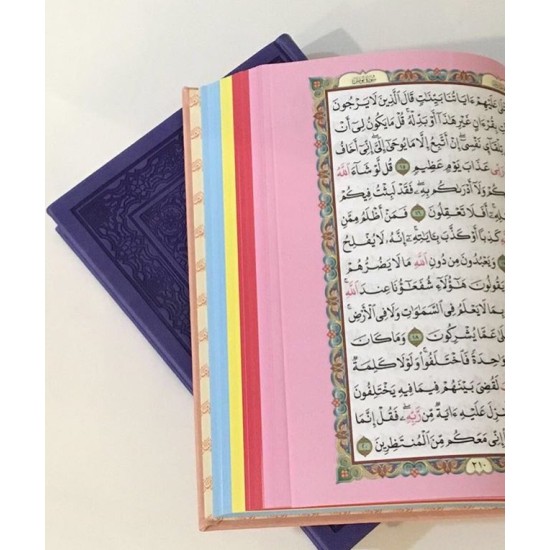 سُورَةُ يُونُسَ
عَلَيْهِمْ ءَايَاتُنَا بَيِّنَٰتٍ قَالَ ٱلَّذِينَ لَا يَرْجُونَ
بِقُرْءَانٍ غَيْرِ هَٰذَآ أَوْ بَدِّلْهُ ۚ قُلْ مَا يَكُونُ لِىٓ أَنْ
نَفْسِىٓ ۖ إِنْ أَتَّبِعُ إِلَّا مَا يُوحَىٰٓ إِلَىَّ ۖ إِنِّىٓ أَخَافُ
رَبِّى عَذَابَ يَوْمٍ عَظِيمٍ ١٥ قُل لَّوْ شَآءَ ٱللَّهُ
وَلَآ أَدْرَىٰكُم بِهِۦ ۖ فَقَدْ لَبِثْتُ فِيكُمْ
أَفَلَا تَعْقِلُونَ ١٦ فَمَنْ أَظْلَمُ مِمَّنِ
كَذِبًا أَوْ كَذَّبَ بِـَٔايَٰتِهِۦٓ ۚ إِنَّهُۥ لَا يُفْلِحُ
وَيَعْبُدُونَ مِن دُونِ ٱللَّهِ مَا لَا يَضُرُّهُمْ
هَٰٓؤُلَآءِ شُفَعَٰٓؤُنَا عِندَ ٱللَّهِ ۚ
بِمَا لَا يَعْلَمُ فِى ٱلسَّمَٰوَٰتِ وَلَا فِى ٱلْأَرْضِ ۚ
عَمَّا يُشْرِكُونَ ١٨ وَمَا كَانَ
وَٰحِدَةً فَٱخْتَلَفُوا۟ ۚ وَلَوْلَا كَلِمَةٌ
لَقُضِىَ بَيْنَهُمْ فِيمَا فِيهِ يَخْتَلِفُونَ
عَلَيْهِ ءَايَةٌ مِّن رَّبِّهِۦ ۖ فَقُلْ إِنَّمَا
إِنِّى مَعَكُم مِّنَ ٱلْمُنتَظِرِينَ ٢٠
٢١٠